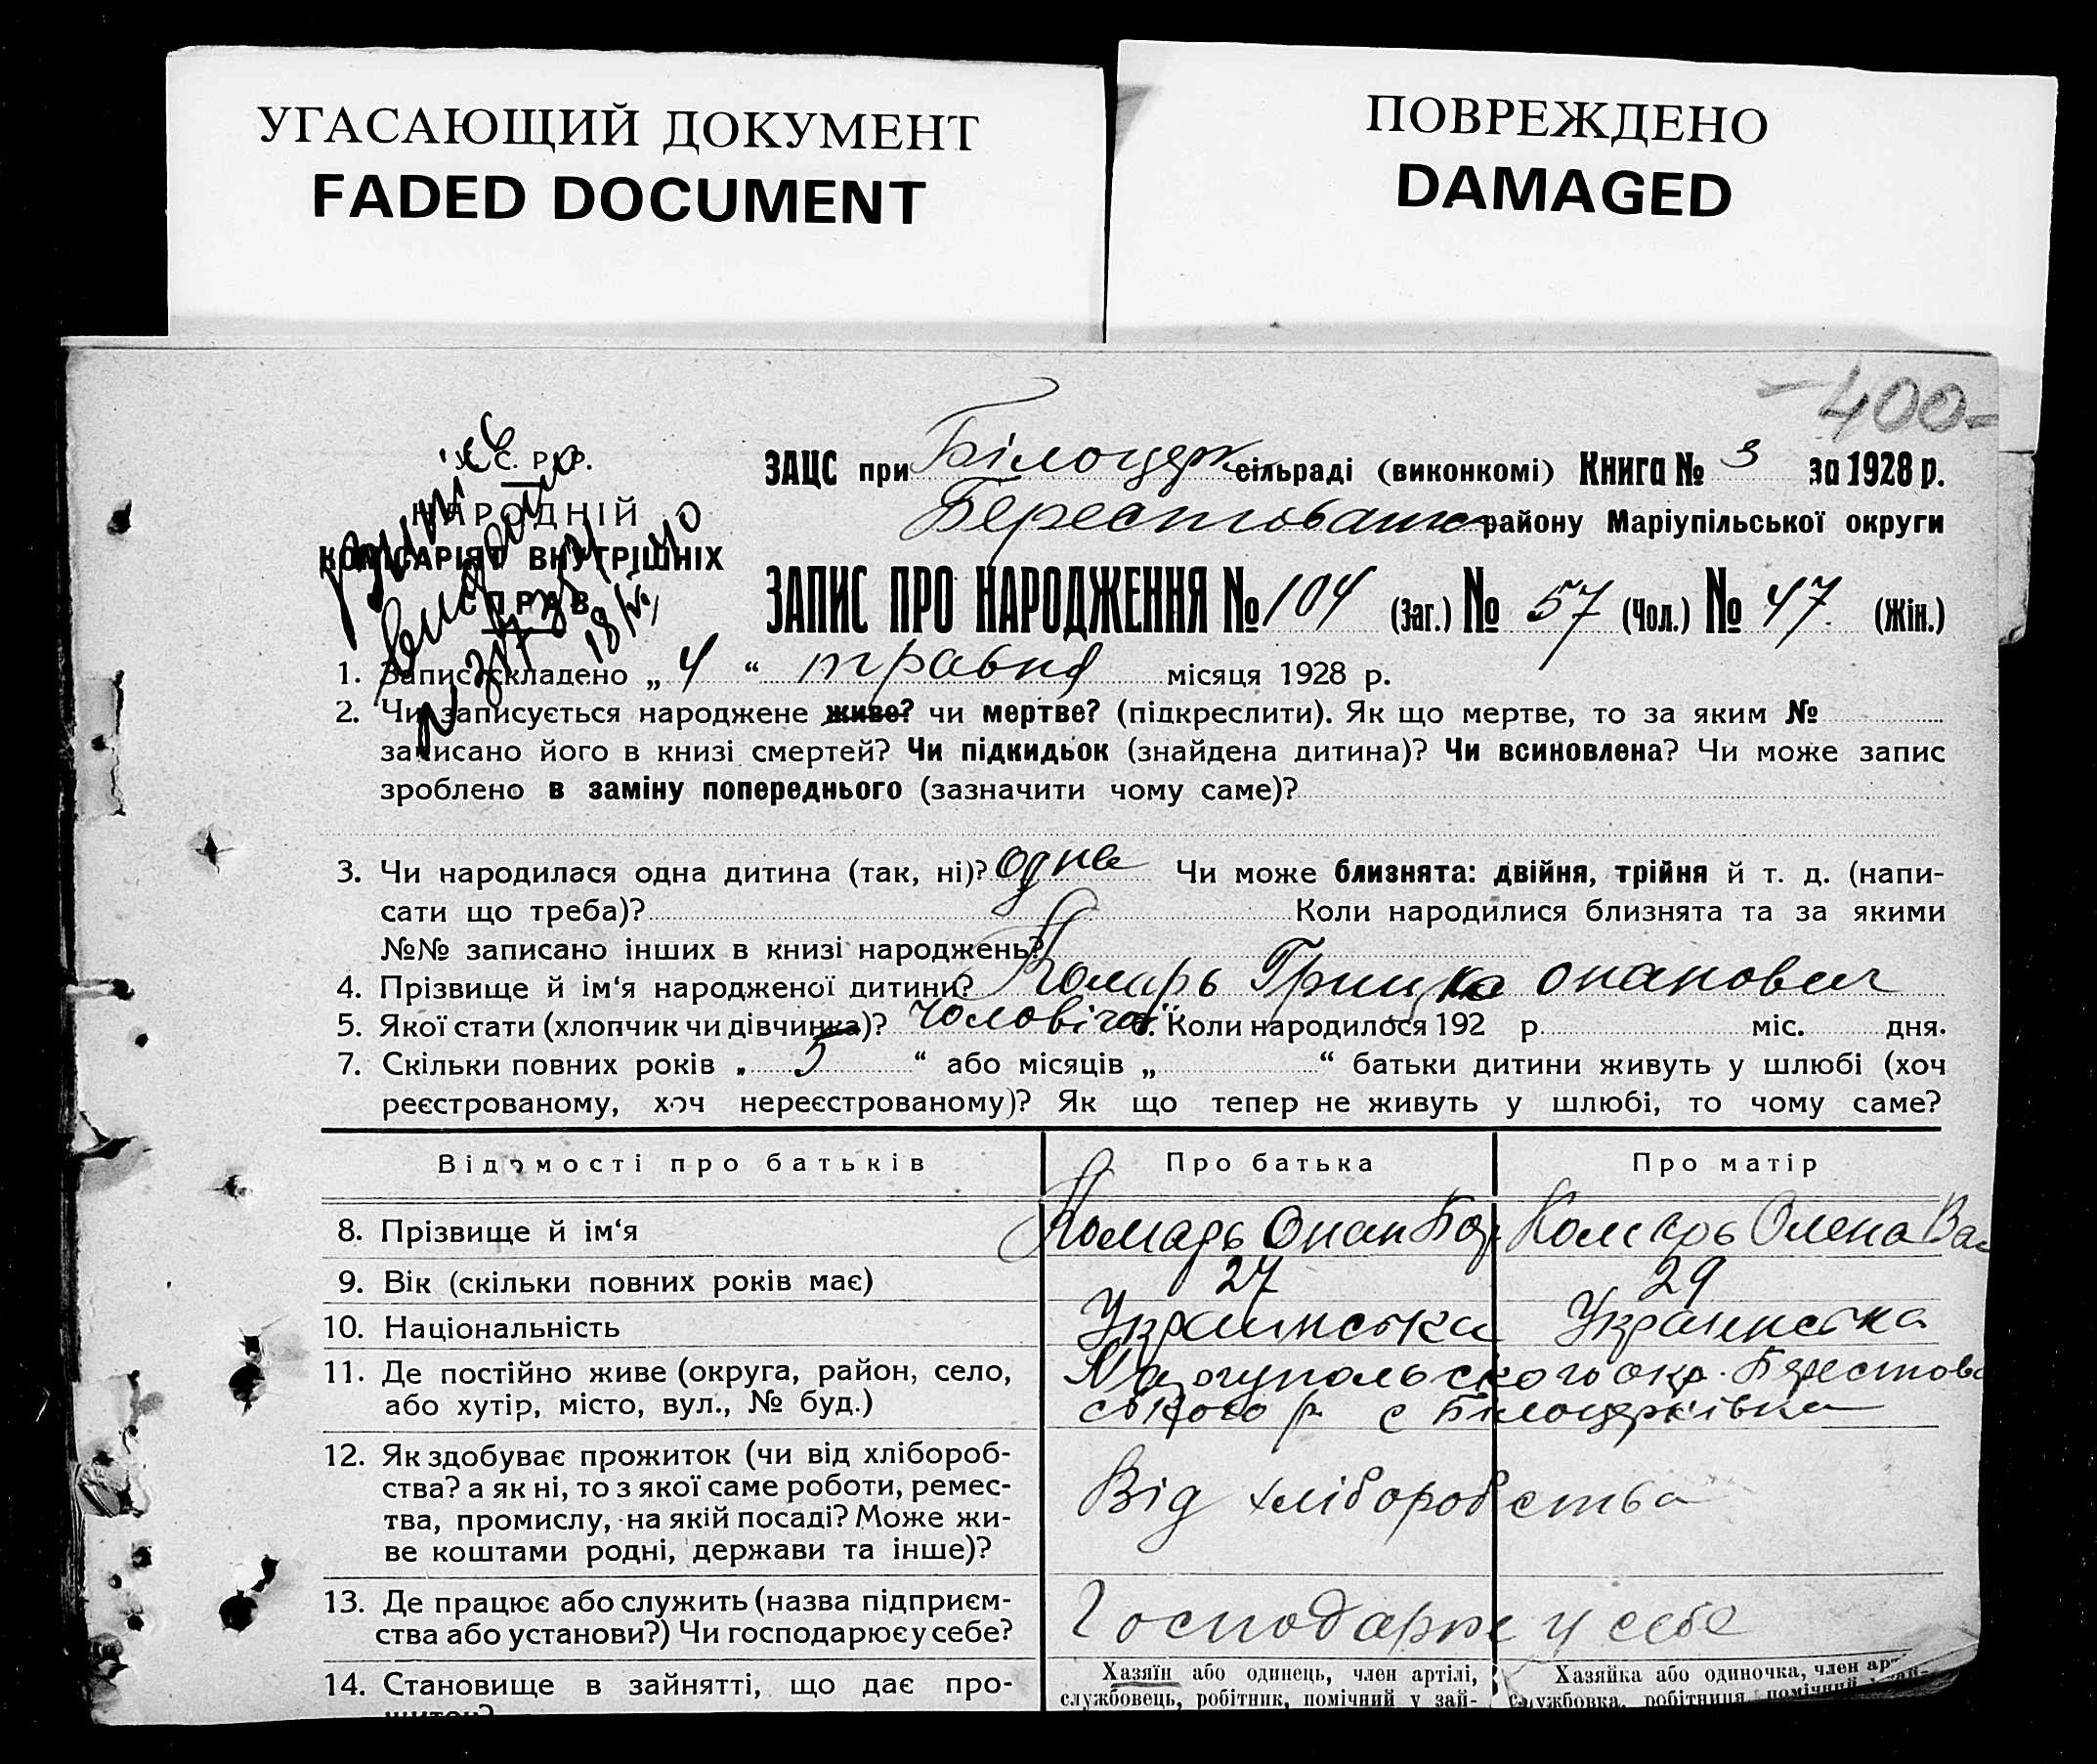 УГАСАЮЩИЙ ДОКУМЕНТ
FADED DOCUMENT
ПОВРЕЖДЕНО
DAMAGED
-400-
У. С. Р. Р.
НАРОДНІЙ
КОМІСАРІЯТ ВНУТРІШНІХ
СПРАВ
ЗАЦС при Білоцерк сільраді (виконкомі) Книга № 3 за 1928 р.
району Маріупільської округи
ЗАПИС ПРО НАРОДЖЕННЯ № 104 (Заг.) № 57 (Чол.) № 47 (Жін.)
1. Запис складено „ 4 “ травня місяця 1928 р.
2. Чи записується народжене живе? чи мертве? (підкреслити). Як що мертве, то за яким №
записано його в книзі смертей? Чи підкидьок (знайдена дитина)? Чи всиновлена? Чи може запис
зроблено в заміну попереднього (зазначити чому саме)?
3. Чи народилася одна дитина (так, ні)? одна Чи може близнята: двійня, трійня й т. д. (напи-
сати що треба)? Коли народилися близнята та за якими
№№ записано інших в книзі народжень?
4. Прізвище й ім‘я народженої дитини? Комарь Грицко онанович
5. Якої стати (хлопчик чи дівчинка)? Чоловічої 6. Коли народилося 192 р. міс. дня.
7. Скільки повних років „ 5 “ або місяців „ “ батьки дитини живуть у шлюбі (хоч
реєстрованому, хоч нереєстрованому)? Як що тепер не живуть у шлюбі, то чому саме?
Відомості про батьків Про батька Про матір
8. Прізвище й ім‘я Комарь Онан Комарь Олена Вас
9. Вік (скільки повних років має) 27 29
10. Національність Украинська Украинська
11. Де постійно живе (округа, район, село, Маріупольского окр. Берестова
або хутір, місто, вул., № буд.) ського р. с Білоцерківка
12. Як здобуває прожиток (чи від хлібороб-
ства? а як ні, то з якої саме роботи, ремес- Від хліборобства
тва, промислу, на якій посаді? Може жи-
ве коштами родні, держави та інше)?
13. Де працює або служить (назва підприєм- Господарює у себе
ства або установи?) Чи господарює у себе?
14. Становище в зайнятті, що дає про- Хазяїн або одинець, член артілі, Хазяйка або одиночка, член арт
службовець, робітник, помічний у зай- службовка, робітниця, помічний у зай-